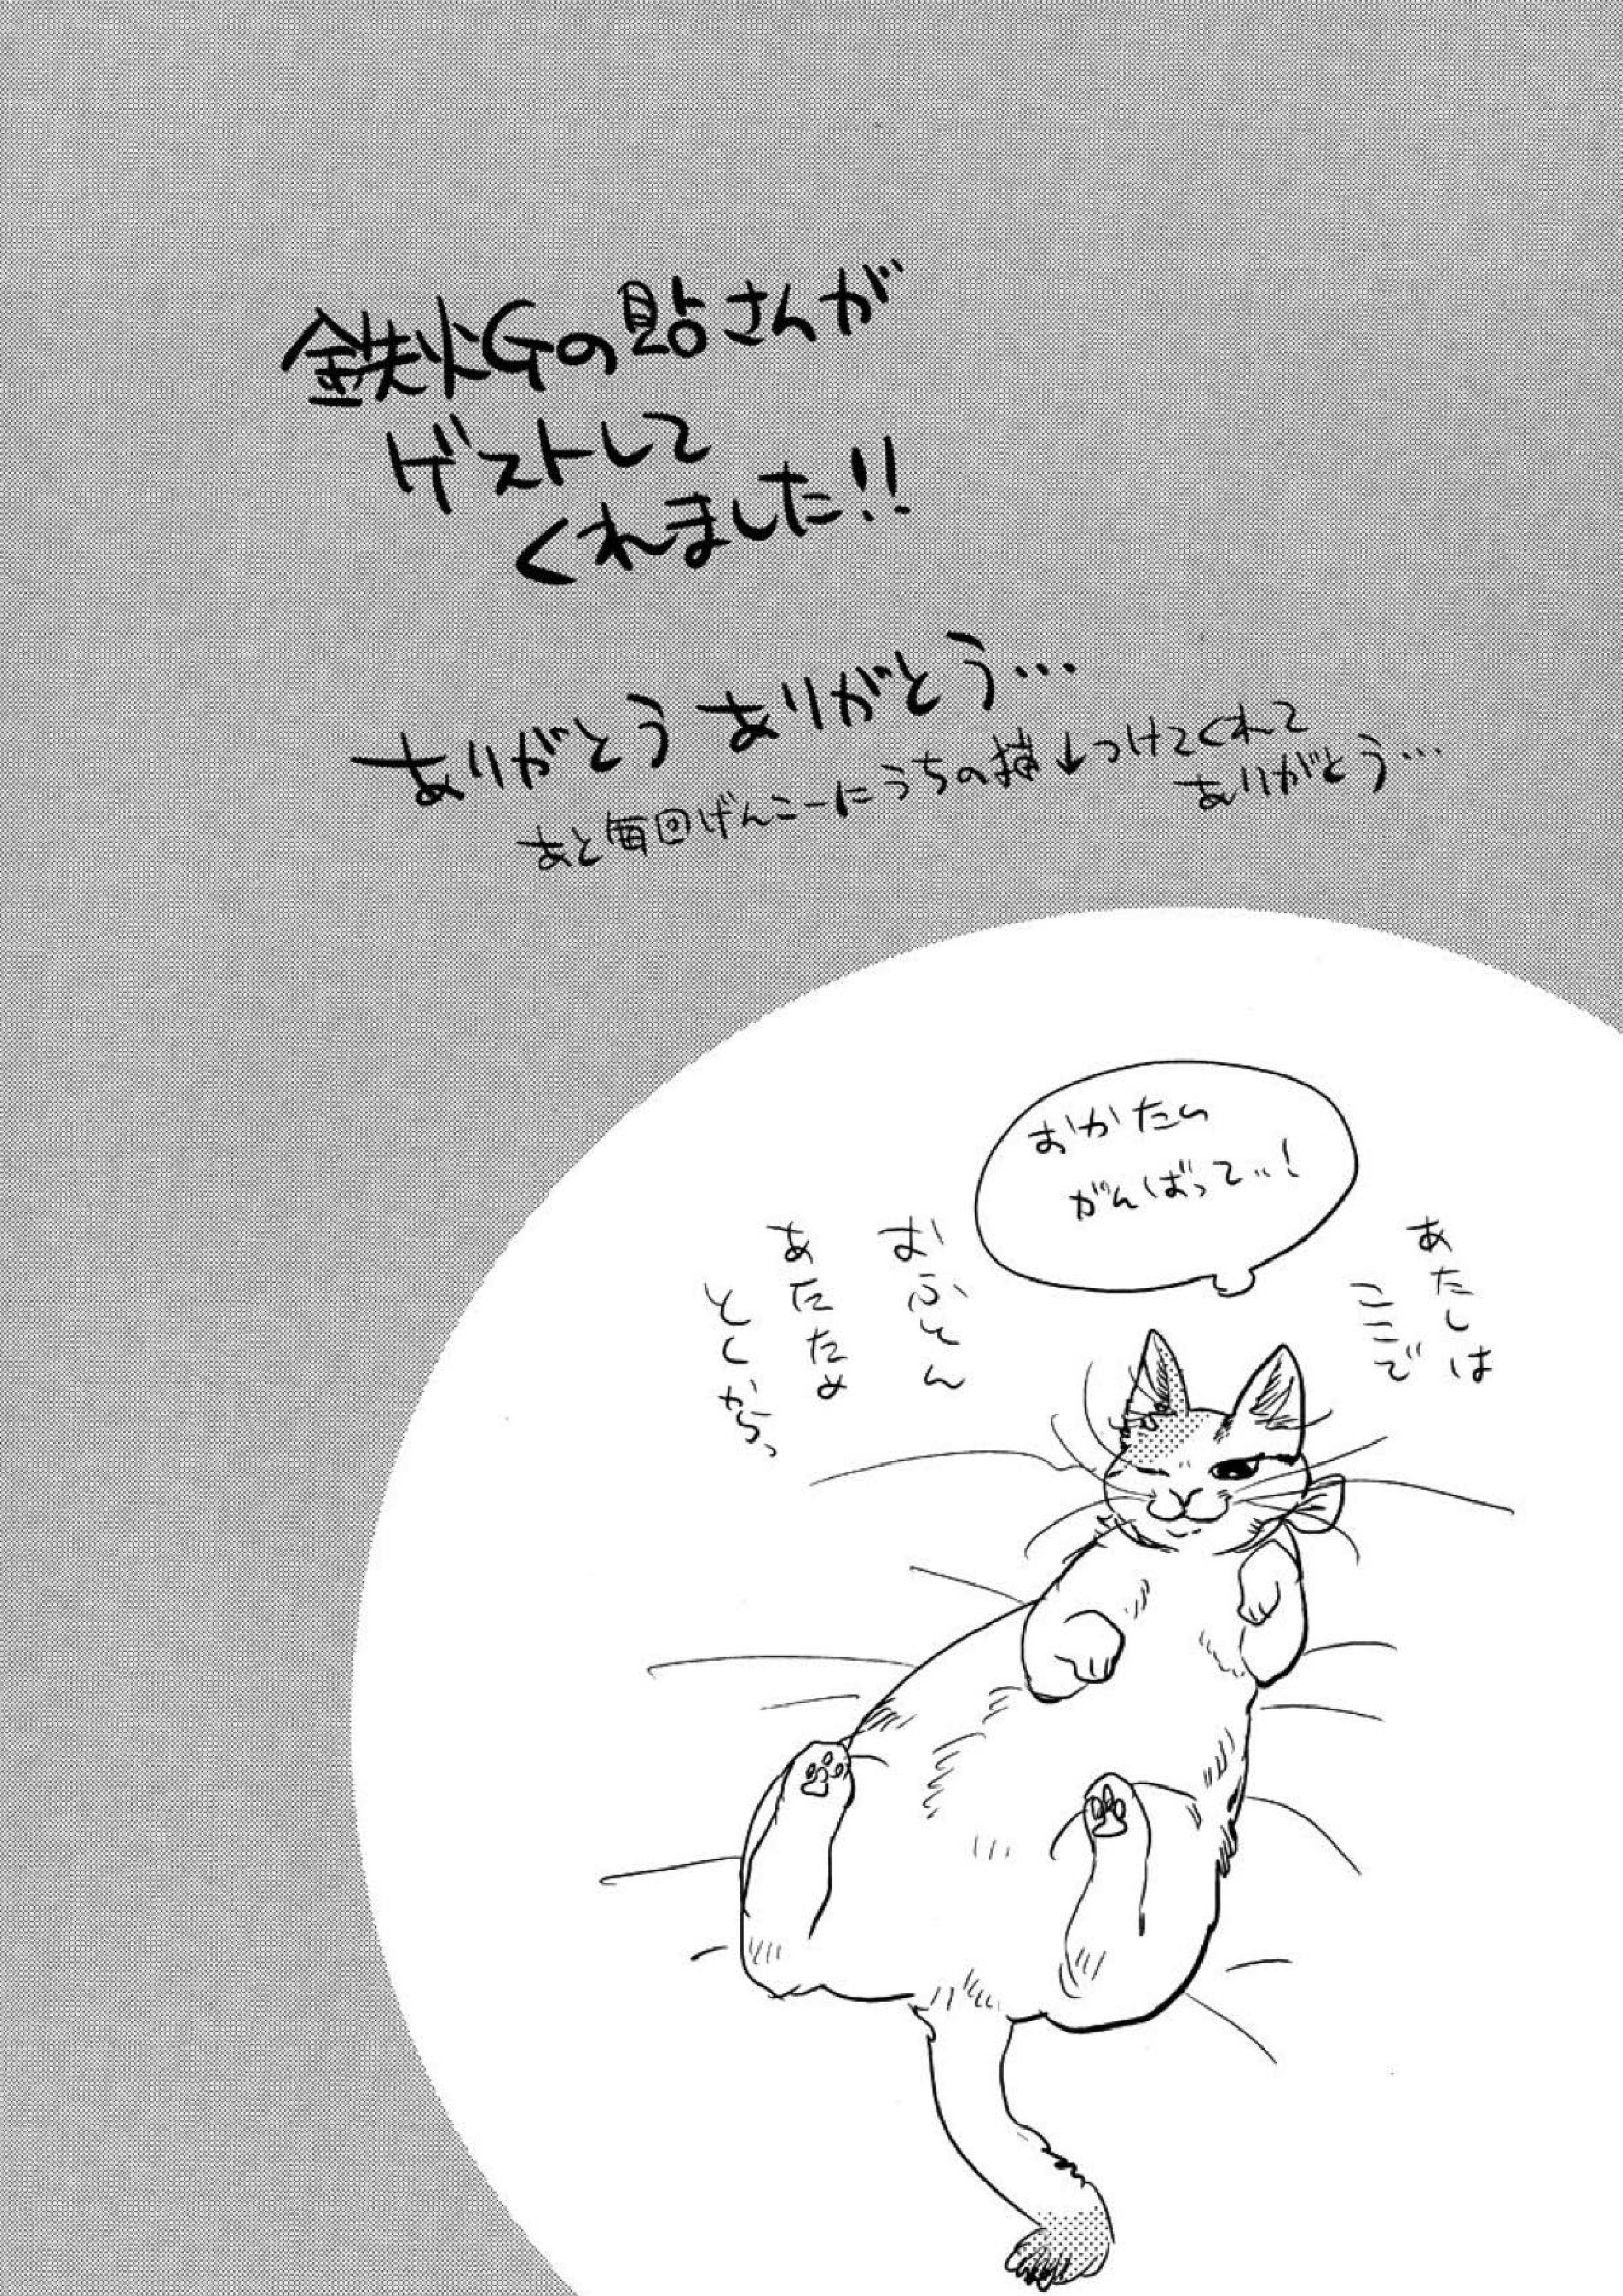 鉄火Gの貼さんが
ゲストして
くれました!!
ありがとう ありがとう…
あと毎回げんこーにうちの猫↓つけてくれて
ありがとう…
おかたい
がんばって…!
あたしは
ここで
おふとん
あたため
とくから、